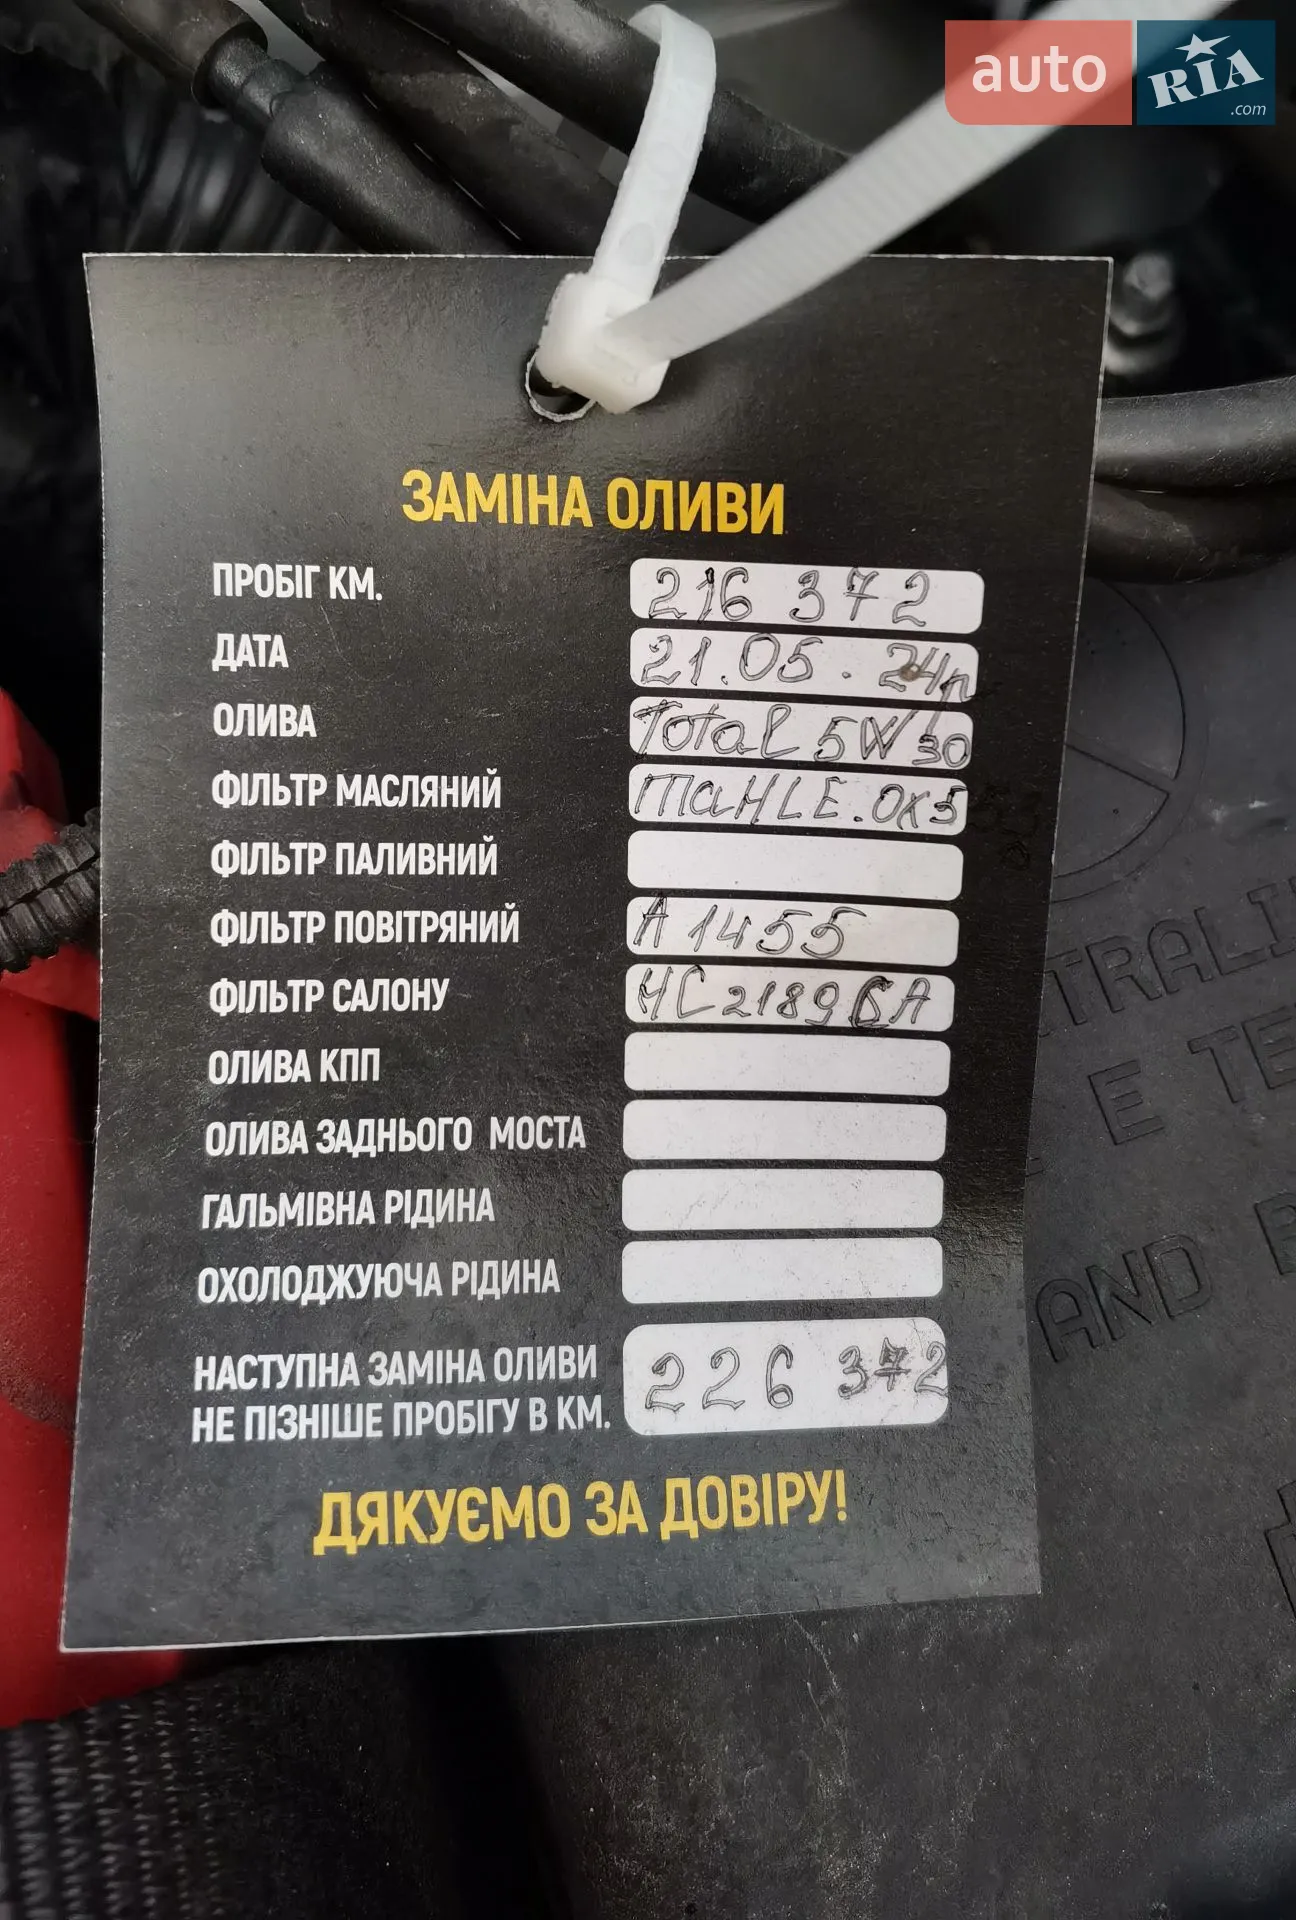 auto RIA.com
ЗАМІНА ОЛИВИ
ПРОБІГ КМ. 216 372
ДАТА 21.05.24р
ОЛИВА Total 5W30
ФІЛЬТР МАСЛЯНИЙ MaHLE.OX5
ФІЛЬТР ПАЛИВНИЙ
ФІЛЬТР ПОВІТРЯНИЙ A1455
ФІЛЬТР САЛОНУ
ОЛИВА КПП
ОЛИВА ЗАДНЬОГО МОСТА
ГАЛЬМІВНА РІДИНА
ОХОЛОДЖУЮЧА РІДИНА
НАСТУПНА ЗАМІНА ОЛИВИ
НЕ ПІЗНІШЕ ПРОБІГУ В КМ. 226 372
ДЯКУЄМО ЗА ДОВІРУ!
TRALI
E TE
AND